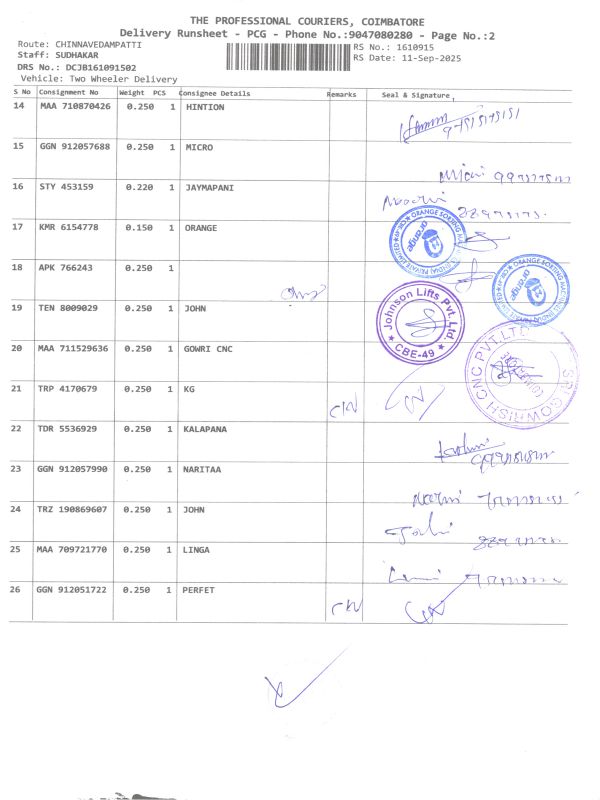 THE PROFESSIONAL COURIERS, COIMBATORE
Delivery Runsheet - PCG - Phone No.:9047080280 - Page No.:2
Route: CHINNAVEDAMPATTI RS No.: 1610915
Staff: SUDHAKAR RS Date: 11-Sep-2025
DRS No.: DCJB161091502
Vehicle: Two Wheeler Delivery
S No Consignment No Weight PCS Consignee Details Remarks Seal & Signature
14 MAA 710870426 0.250 1 HINTION
15 GGN 912057688 0.250 1 MICRO
16 STY 453159 0.220 1 JAYMAPANI
17 KMR 6154778 0.150 1 ORANGE
ORANGE SORTING MACHINES INDIA PRIVATE LIMITED
orange
18 APK 766243 0.250 1
orange
19 TEN 8009029 0.250 1 JOHN
Johnson Lifts Pvt.Ltd.
CBE-49
20 MAA 711529636 0.250 1 GOWRI CNC
SRI GOWRISH CNC PVT.LTD
21 TRP 4170679 0.250 1 KG
22 TDR 5536929 0.250 1 KALAPANA
23 GGN 912057990 0.250 1 NARITAA
24 TRZ 190869607 0.250 1 JOHN
25 MAA 709721770 0.250 1 LINGA
26 GGN 912051722 0.250 1 PERFET